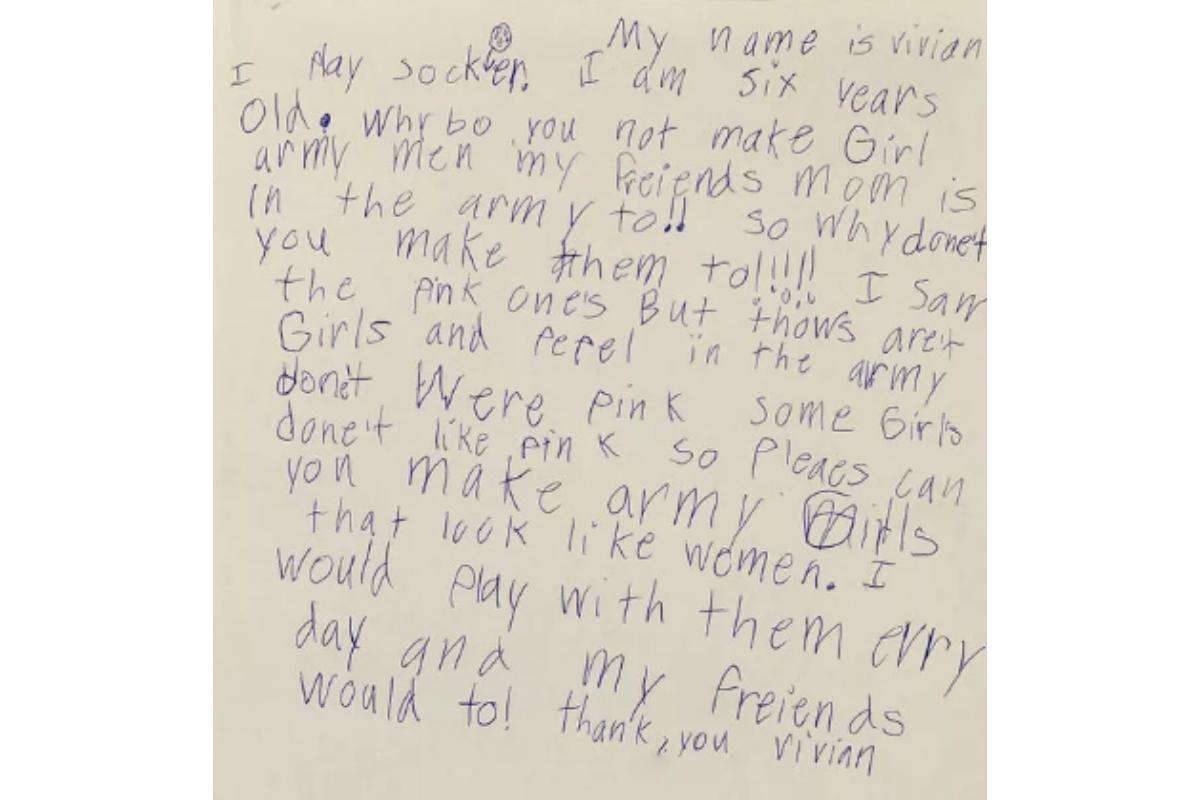 My name is vivian
I play socker. I am six years
Old. Why bo you not make Girl
army men my freiends mom is
in the army to!! so why done't
you make them to!!!!! I saw
the pink one's But thows are't
Girls and pepel in the army
don't Were pink some Girls
done't like pink so pleaes can
you make army girls
that look like women. I
would play with them evry
day and my freiends
would to! thank, you vivian